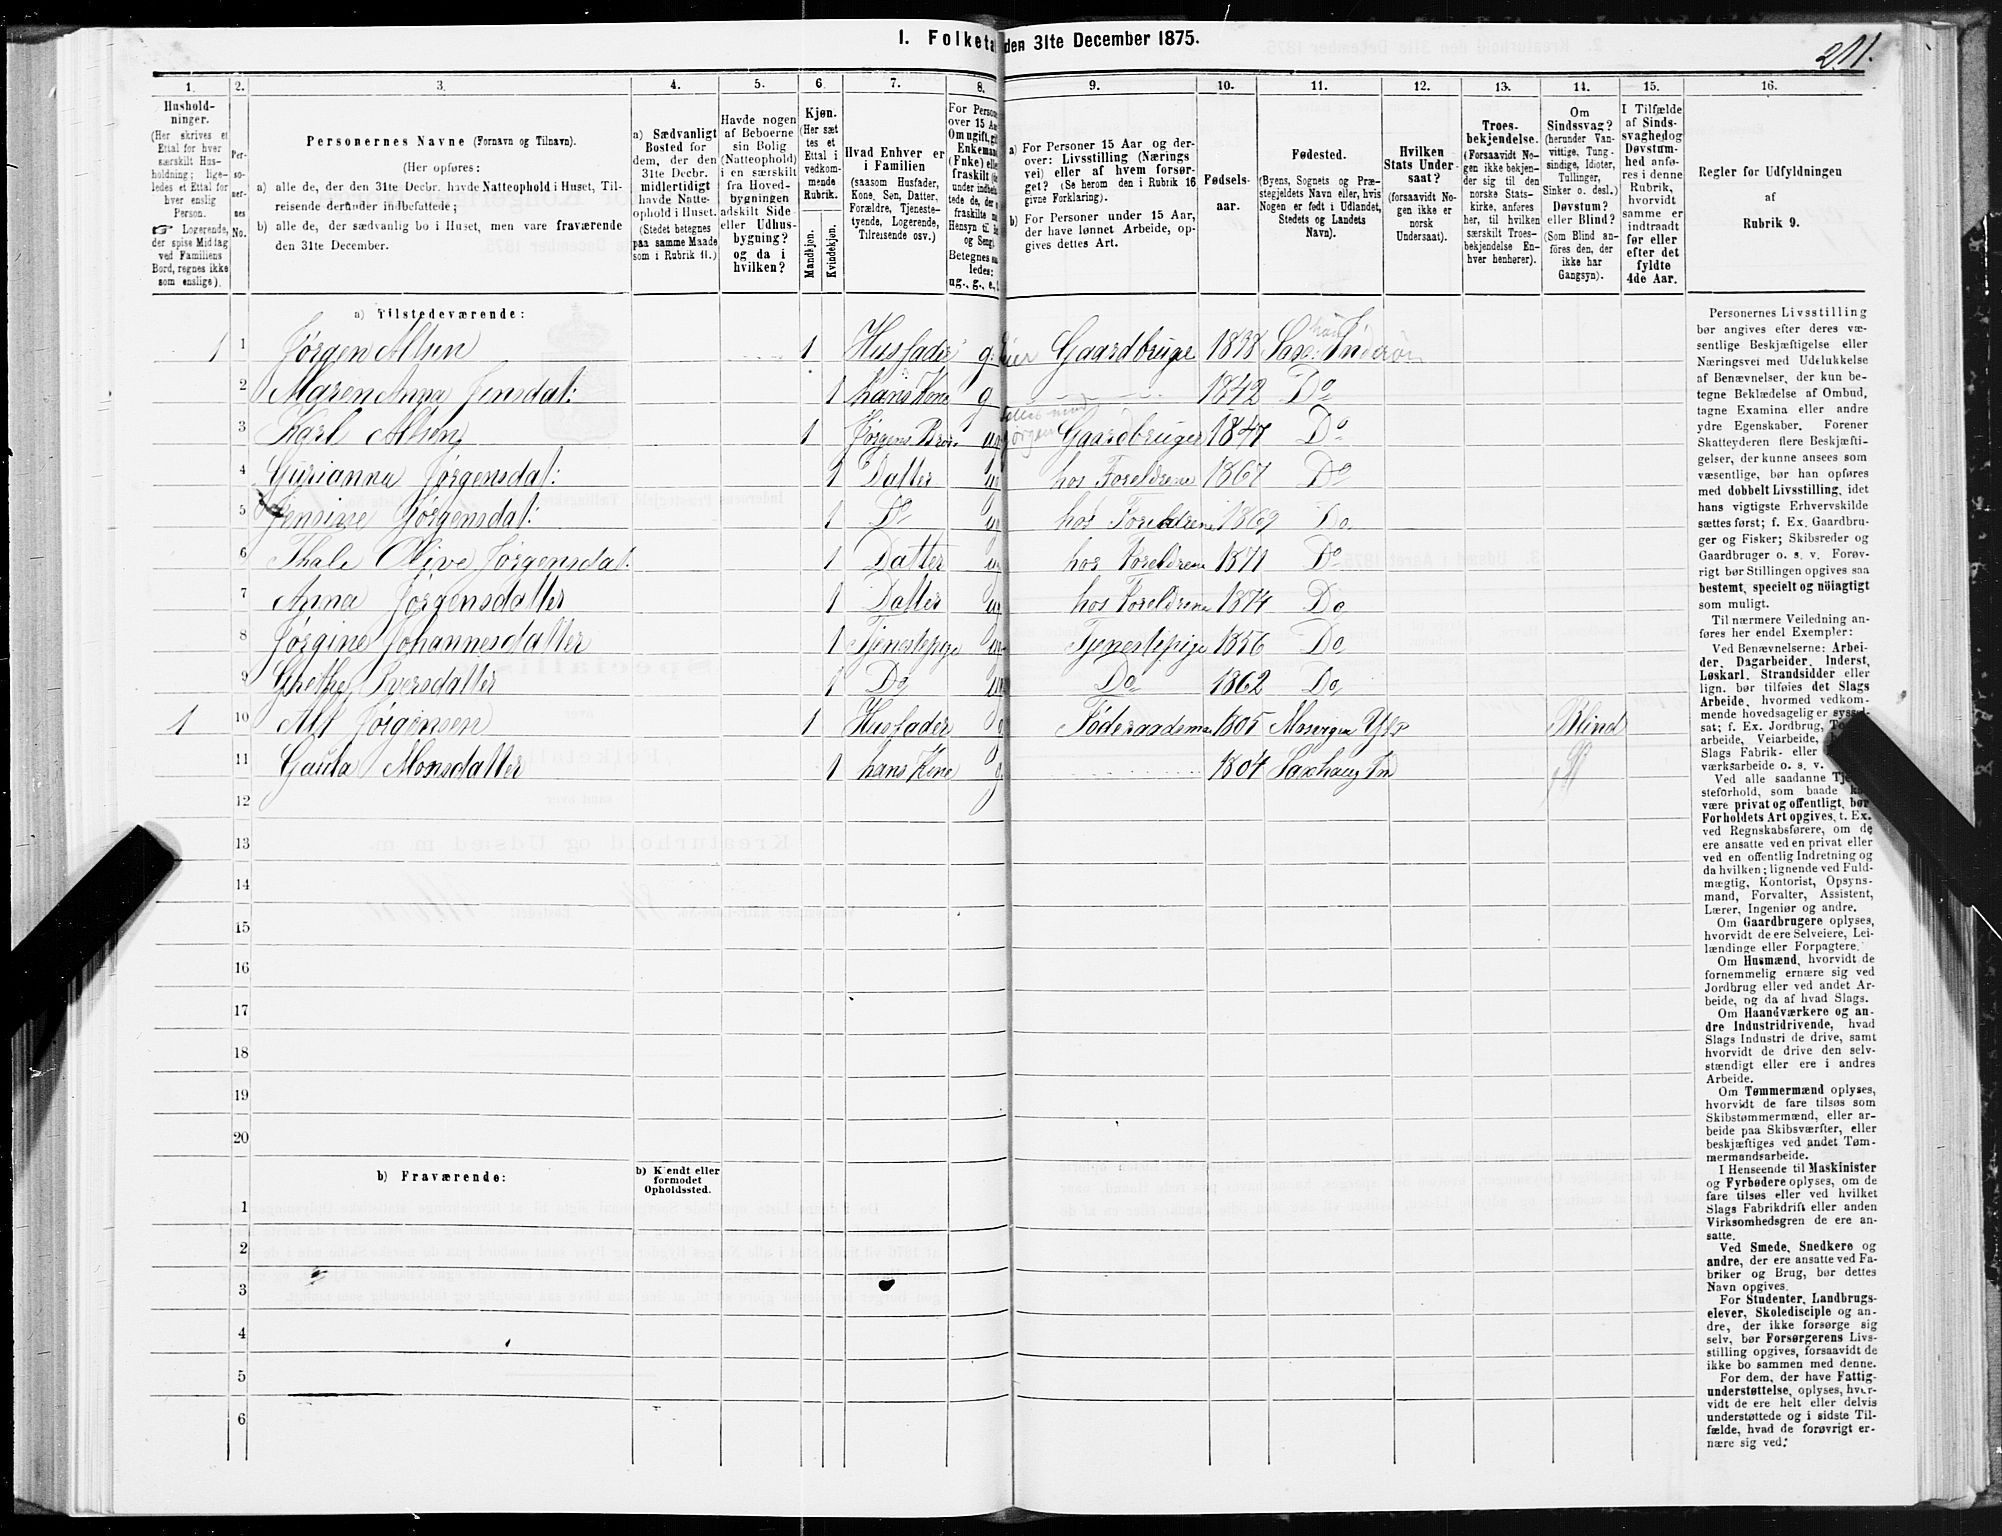 I. Folketa den 31te December 1875.
211.
1. 2. 3. 4. 5. 6. 7. 8. 9. 10. 11. 12. 13. 14. 15. 16.
Hushold-
ninger.
(Her skrives et
Ettal for hver
særskilt Hus-
holdning; lige-
ledes et Ettal for
hver enslig
Person.
☞ Logerende,
der spise Middag
ved Familiens
Bord, regnes ikke
som enslige).
Per-
so-
ner-
nes
No.
Personernes Navne (Fornavn og Tilnavn).
(Her opføres:
a) alle de, der den 31te Decbr. havde Natteophold i Huset, Til-
reisende derunder indbefattede;
b) alle de, der sædvanlig bo i Huset, men vare fraværende
den 31te December.
a) Sædvanligt
Bosted for
dem, der den
31te Decbr.
midlertidigt
havde Natte-
ophold i Huset.
(Stedet betegnes
paa samme Maade
som i Rubrik 11.)
Havde nogen
af Beboerne
sin Bolig
(Natteophold)
i en særskilt
fra Hoved-
bygningen
adskilt Side-
eller Udhus-
bygning?
og da i
hvilken?
Kjøn.
(Her sæt-
tes et
Ettal i
vedkom-
mende
Rubrik.
Mandkjøn.
Kvindekjøn.
Hvad Enhver er
i Familien
(saasom Husfader,
Kone, Søn, Datter,
Forældre, Tjeneste-
tyende, Logerende,
Tilreisende osv.)
For Persone
over 15 Aa
Om ugift, gi
Enkemand
(Enke) elle
fraskilt
Betegnes saa
ledes:
ug., g., e., f.
a) For Personer 15 Aar og der-
over: Livsstilling (Nærings-
vei) eller af hvem forsør-
get? (Se herom den i Rubrik 16
givne Forklaring).
b) For Personer under 15 Aar,
der have lønnet Arbeide, op-
gives dettes Art.
Fødsels-
aar.
Fødested.
(Byens, Sognets og Præ-
stegjeldets Navn eller, hvis
Nogen er født i Udlandet,
Stedets og Landets
Navn).
Hvilken
Stats Under-
saat?
(forsaavidt No-
gen ikke er
norsk
Undersaat).
Troes-
bekjendelse.
(Forsaavidt No-
gen ikke bekjen-
der sig til den
norske Stats-
kirke, anføres
her, til hvilken
særskilt Troes-
bekjendelse En-
hver henhører).
Om
Sindssvag?
(herunder Van-
vittige, Tung-
sindige, Idioter,
Tullinger,
Sinker o. desl.)
Døvstum?
eller Blind?
(Som Blind an-
føres den, der
ikke har
Gangsyn).
I Tilfælde
af Sinds-
svaghed og
Døvstum-
hed anfø-
res i denne
Rubrik,
hvorvidt
samme er
indtraadt
før eller
efter det
fyldte
4de Aar.
Regler for Udfyldningen
af
Rubrik 9.
a) Tilstedeværende:
1 1 Jørgen Alsen 1 Husfader g. Gaardbruger 1838
2 Maren Anna Jensdat: 1 hans Kone g 1842 Do
3 Karl Alsen 1 Jørgens Bror Gaardbruger 1847 Do
4 Gurianna Jørgensdat: 1 Datter hos Foreldrene 1867 Do
5 Jensine Jørgensdat: 1 Do hos Foreldrene 1869 Do
6 Thale Olive Jørgensdat. 1 Datter hos Foreldrene 1871 Do
7 Anna Jørgensdatter 1 Datter hos Foreldrene 1874 Do
8 Jørgine Johannesdatter 1 Tjenestepige Tjenestepige 1856 Do
9 Grethe Iversdatter 1 Do Do 1862 Do
1 10 Alf Jørgensen 1 Husfader Føderaadsman 1805 Blind
11 Gauta Monsdatter 1 hans Kone 1804 Saxhaug In
12
13
14
15
16
17
18
19
20
b) Fraværende:
b) Kjendt eller
formodet
Opholdssted.
1
2
3
4
5
6
Personernes Livsstilling
bør angives efter deres væ-
sentlige Beskjæftigelse eller
Næringsvei med Udelukkelse
af Benævnelser, der kun be-
tegne Beklædelse af Ombud,
tagne Examina eller andre
ydre Egenskaber. Forener
Skatteyderen flere Beskjæfti-
gelser, der kunne ansees som
væsentlige, bør han opføres
med dobbelt Livsstilling, idet
hans vigtigste Erhvervskilde
sættes først; f. Ex. Gaardbru-
ger og Fisker; Skibsreder og
Gaardbruger o. s. v. Forøv-
rigt bør Stillingen opgives saa
bestemt, specielt og nöiagtigt
som muligt.
Til nærmere Veiledning an-
føres her endel Exempler:
Ved Benævnelserne: Arbei-
der, Dagarbeider, Inderst,
Løskarl, Strandsidder eller
lign. bør tilføies det Slags
Arbeide, hvormed vedkom-
mende hovedsagelig er syssel-
sat; f. Ex. Jordbrug,
arbeide, Veiarbeide,
Slags Fabrik- eller
værksarbeide o. s. v.
Ved alle saadanne Tje-
steforhold, som baade
være privat og offentligt, bør
Forholdets Art opgives, t. Ex.
ved Regnskabsførere, om de
ere ansatte ved en privat eller
ved en offentlig Indretning og
da hvilken; lignende ved Fuld-
mægtig, Kontorist, Opsyns-
mand, Forvalter, Assistent,
Lærer, Ingeniør og andre.
Om Gaardbrugere oplyses,
hvorvidt de ere Selveiere, Lei-
lændinge eller Forpagtere.
Om Husmænd, hvorvidt de
fornemmelig ernære sig ved
Jordbrug eller ved andet Ar-
beide, og da af hvad Slags.
Om Haandværkere og an-
dre Industridrivende, hvad
Slags Industri de drive, samt
hvorvidt de drive den selv-
stændigt eller ere i andres
Arbeide.
Om Tømmermænd oplyses,
hvorvidt de fare tilsøs som
Skibstømmermænd, eller ar-
beide paa Skibsværfter, eller
beskjæftiges ved andet Tøm-
mermandsarbeide.
I Henseende til Maskinister
og Fyrbødere oplyses, om de
fare tilsøs eller ved hvilket
Slags Fabrikdrift eller anden
Virksomhedsgren de ere an-
satte.
Ved Smede, Snedkere og
andre, der ere ansatte ved Fa-
briker og Brug, bør dettes
Navn opgives.
For Studenter, Landbrugs-
elever, Skoledisciple og an-
dre, der ikke forsørge sig
selv, bør Forsørgerens Livs-
stilling opgives, forsaavidt de
ikke bo sammen med denne.
For dem, der have Fattig-
understøttelse, oplyses, hvor-
vidt de ere helt eller delvis
understøttede og i sidste Til-
fælde, hvad de forøvrigt er-
nære sig ved.